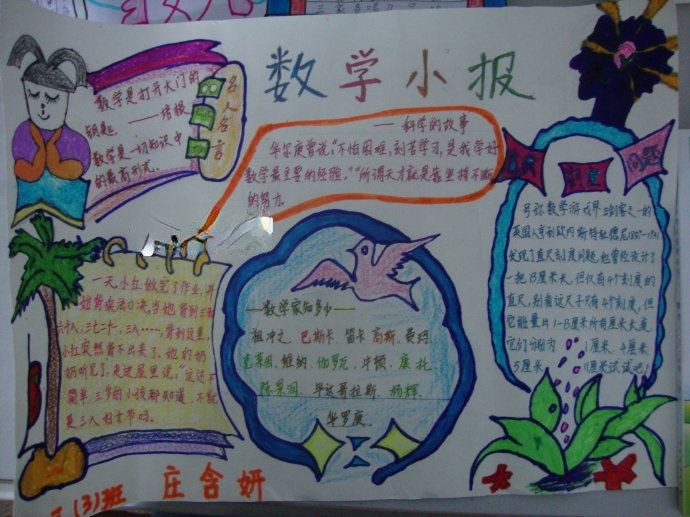 数学小报
名人名言
数学是打开大门的
钥匙。——培根
数学是一切知识中
的最高形式。
——科学的故事
华尔庚曾说，“不怕困难，刻苦学习，是我学好
数学最主要的经验。”“所谓天才就是靠坚持不断
的努力。
一天，小红做完了作业，开
始背乘法口决，当她背到三五
十八，三七二十，三八……，背到这里，
小红突然背不出来了。她的奶
奶听见了，是说
简单三岁的小孩都知道，不就
是三八妇女节吗。
——数学家知多少——
祖冲之、巴斯卡、笛卡、高斯、费玛、
克莱因、维纳、伽罗瓦、牛顿、康托、
陈景润、毕达哥拉斯、杨辉、
华罗庚。
问题
号称数学游戏界三剑客之一的
英国人亨利欧内斯特杜德尼1857-19
发现了直尺刻度问题，他曾设计了
一把13厘米长，但仅有4个刻度的
直尺，别看这尺子只有4个刻度，但
它能量出1-13厘米所有厘米长度，
它们分别为 1厘米、4厘米
5厘米 11厘米试试吧！
(3)班 庄含妍